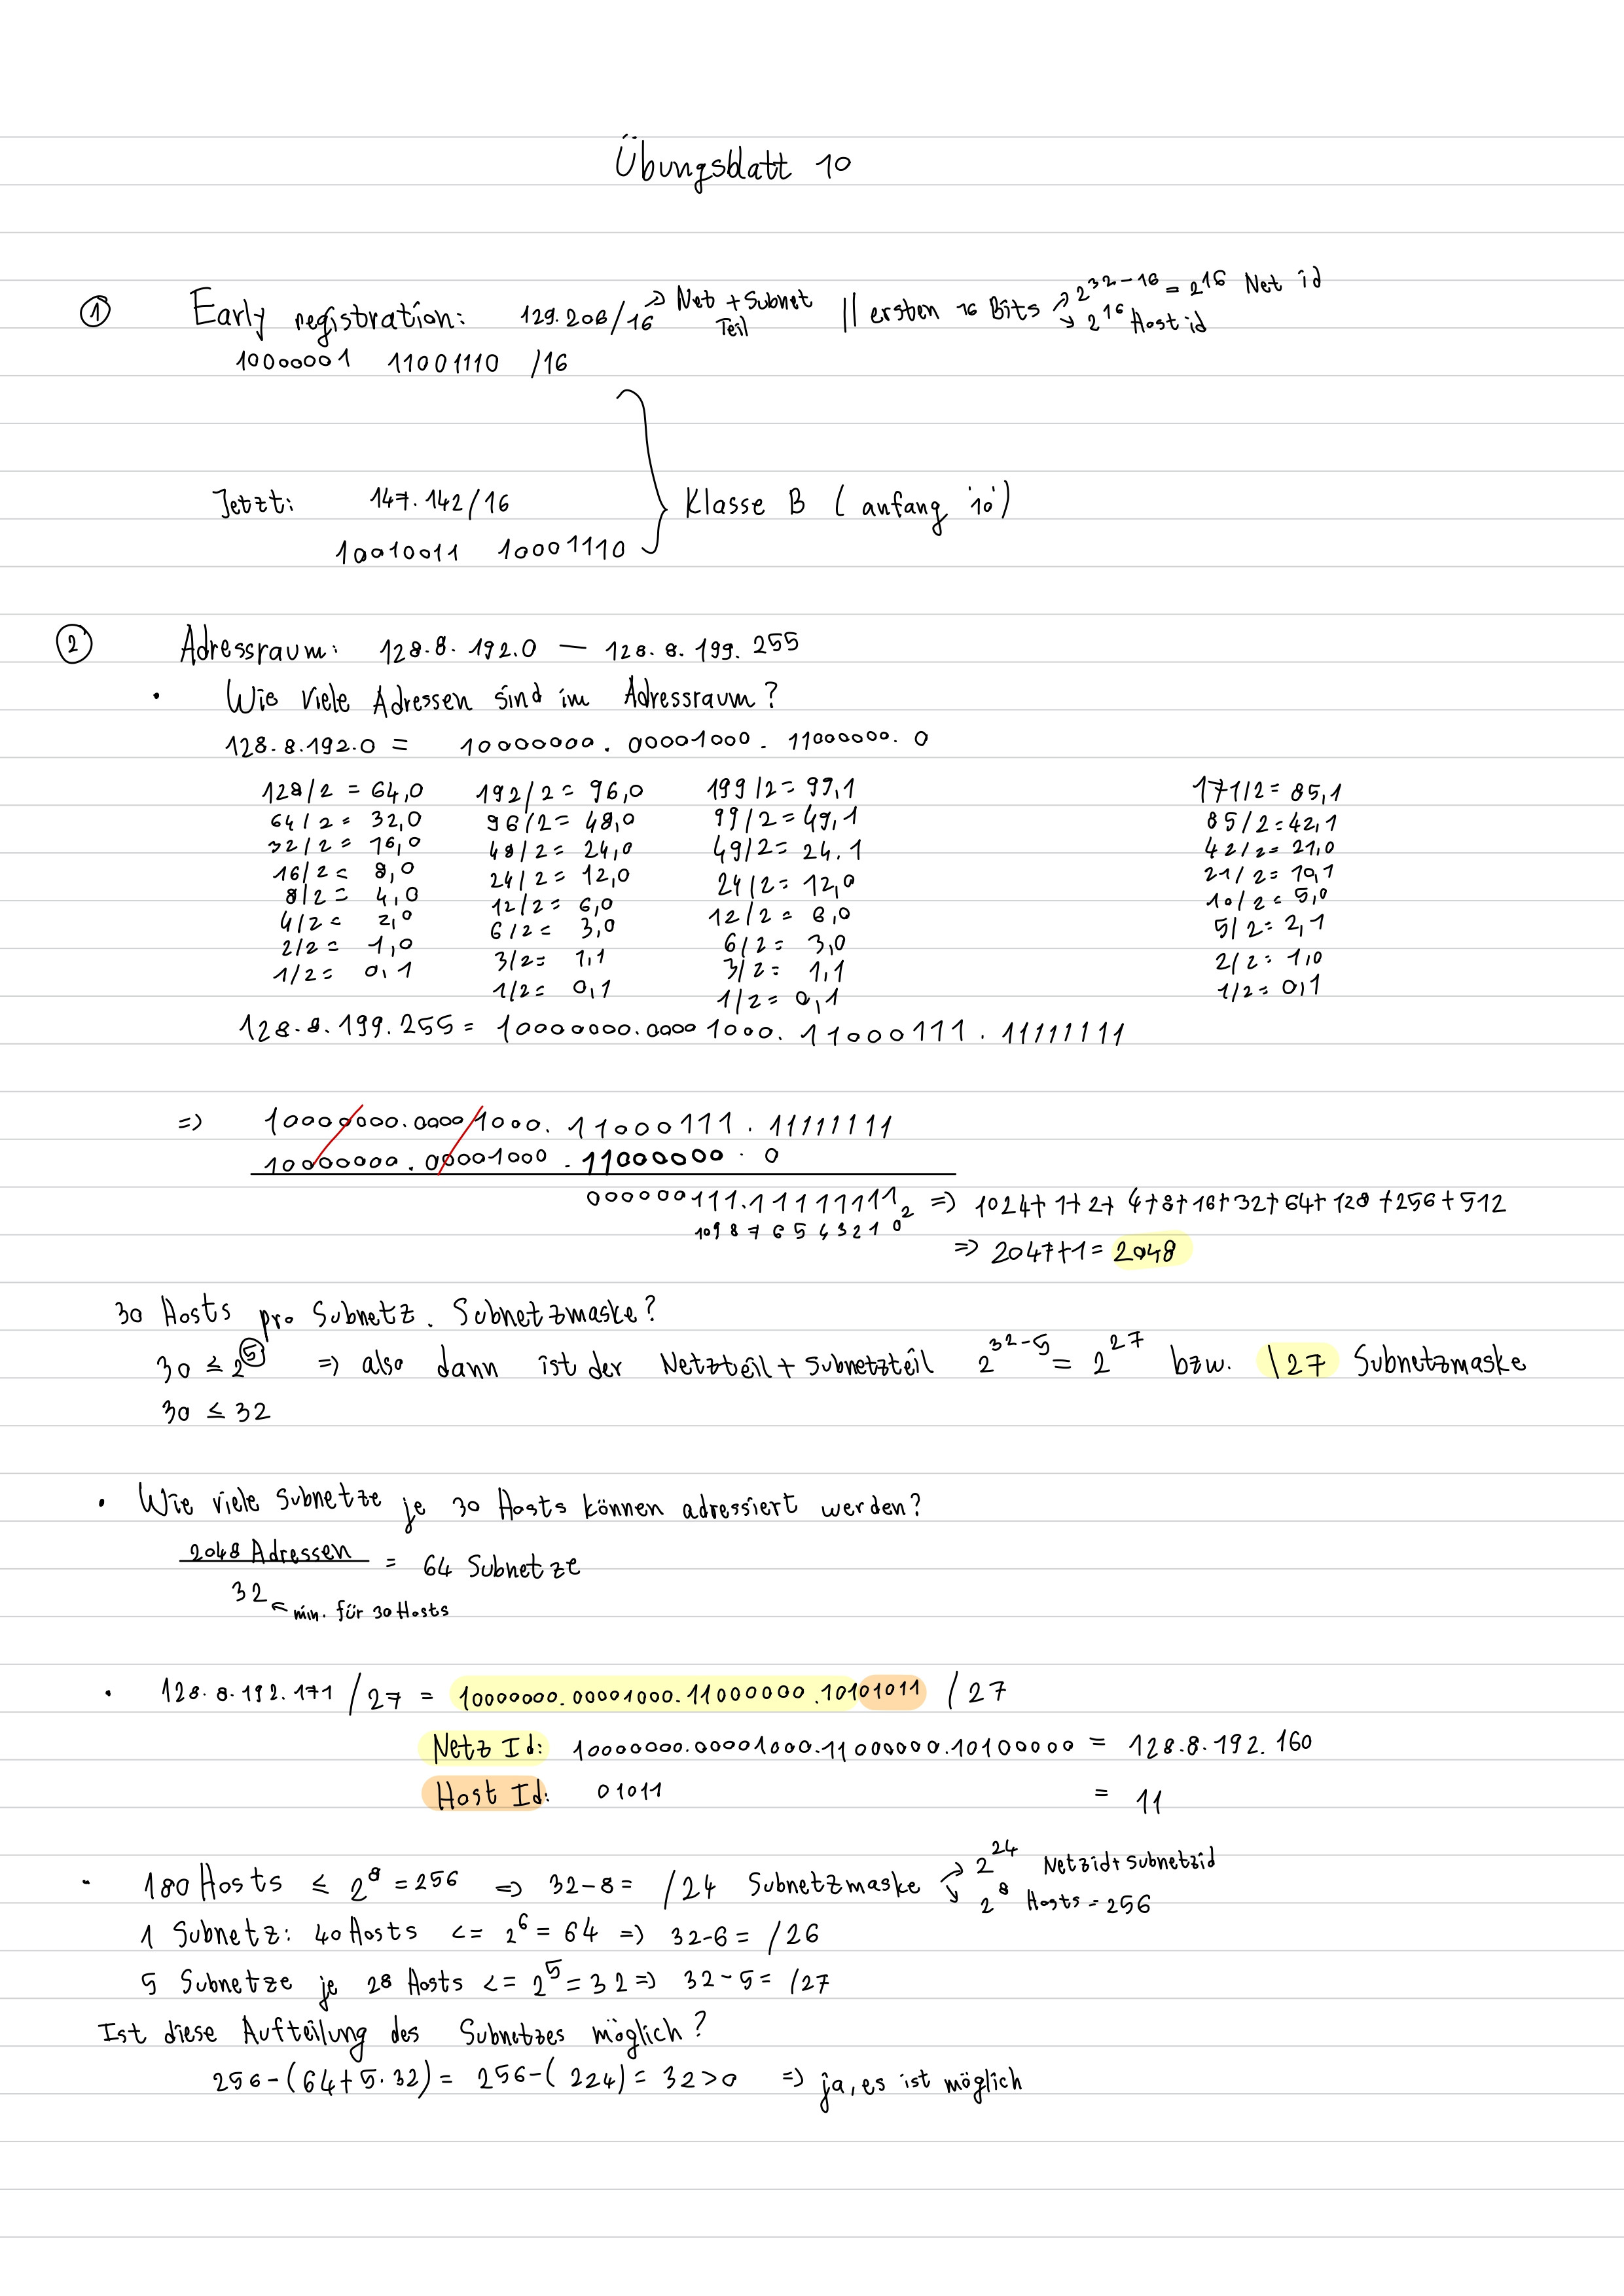 Übungsblatt 10
① Early registration: 129.206/16 → Net + Subnet Teil || ersten 16 Bits → 2^32-16 = 2^16 Net id
↘ 2^16 Host id
10000001 11001110 /16
Jetzt: 147.142/16 } Klasse B ( anfang '10')
10010011 10001110
② Adressraum: 128.8.192.0 — 128.8.199.255
• Wie viele Adressen sind im Adressraum?
128.8.192.0 = 10000000.00001000.11000000.0
128/2 = 64,0 192/2 = 96,0 199/2 = 99,1 171/2 = 85,1
64/2 = 32,0 96/2 = 48,0 99/2 = 49,1 85/2 = 42,1
32/2 = 16,0 48/2 = 24,0 49/2 = 24.1 42/2 = 21,0
16/2 = 8,0 24/2 = 12,0 24/2 = 12,0 21/2 = 10,1
8/2 = 4,0 12/2 = 6,0 12/2 = 6,0 10/2 = 5,0
4/2 = 2,0 6/2 = 3,0 6/2 = 3,0 5/2 = 2,1
2/2 = 1,0 3/2 = 1,1 3/2 = 1,1 2/2 = 1,0
1/2 = 0,1 1/2 = 0,1 1/2 = 0,1 1/2 = 0,1
128.8.199.255 = 10000000.00001000.11000111.11111111
=> 10000000.00001000.11000111.11111111
10000000.00001000.11000000.0
000000111.11111111₂ => 1024+1+2+4+8+16+32+64+128+256+512
10 9 8 7 6 5 4 3 2 1 0
=> 2047+1 = 2048
30 Hosts pro Subnetz. Subnetzmaske?
30 ≤ 2^5 => also dann ist der Netzteil + Subnetzteil 2^32-5 = 2^27 bzw. /27 Subnetzmaske
30 ≤ 32
• Wie viele Subnetze je 30 Hosts können adressiert werden?
2048 Adressen / 32 = 64 Subnetze
← min. für 30 Hosts
• 128.8.192.171 /27 = 10000000.00001000.11000000.10101011 /27
Netz Id: 10000000.00001000.11000000.10100000 = 128.8.192.160
Host Id: 01011 = 11
• 180 Hosts ≤ 2^8 = 256 => 32-8 = /24 Subnetzmaske → 2^24 Netzid+Subnetzid
↘ 2^8 Hosts = 256
1 Subnetz: 40 Hosts <= 2^6 = 64 => 32-6 = /26
5 Subnetze je 28 Hosts <= 2^5 = 32 => 32-5 = /27
Ist diese Aufteilung des Subnetzes möglich?
256-(64+5·32) = 256-(224) = 32>0 => ja, es ist möglich